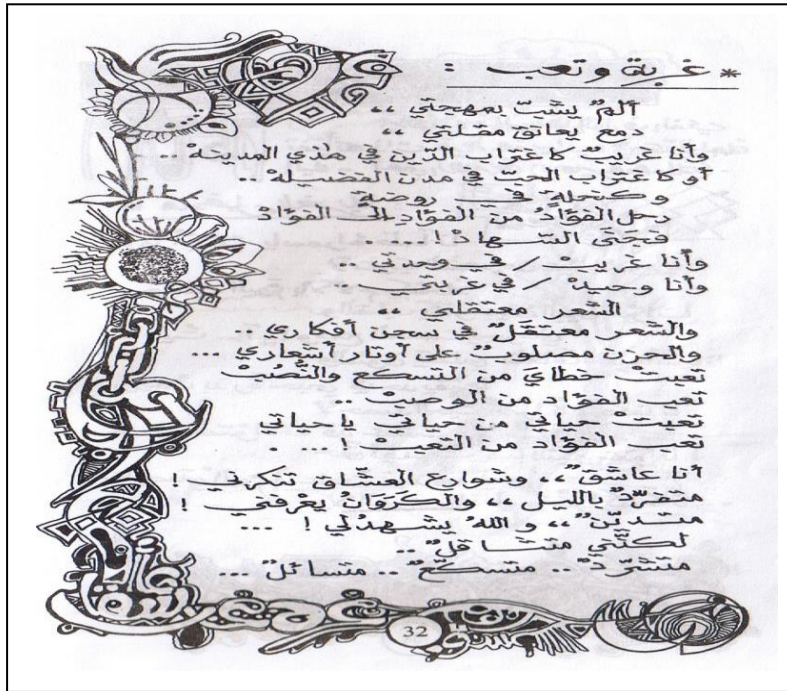 * غربة وتعب :
ألمٌ يشبّ بمهجتي ،،
دمع يعانق مقلتي ،،
وأنا غريبٌ كاغتراب الدّين في هذي المدينهْ ..
أو كاغتراب الحبّ في مدن الفضيلهْ ..
وكنحلةٍ في روضةٍ
رحل الفؤادُ من الفؤادِ إلى الفؤادْ
فجنَى السّهادْ ! ... .
وأنا غريبْ / في وحدتي ..
وأنا وحيدْ / في غربتي ..
الشّعر معتقلي ،،
والشّعر معتقلٌ في سجن أفكاري ..
والحزن مصلوبٌ على أوتار أشعاري ...
تعبتْ خطايَ من التسكع والنُّصُبْ
تعب الفؤاد من الوصبْ ..
تعبتْ حياتي من حياتي يا حياتي
تعب الفؤاد من التعبْ ! ... .
أنا عاشقٌ ،، وشوارع العشّاق تنكرني !
متفرّدٌ بالليل ،، والكَرَوَانُ يعْرفني !
متديّنٌ ،، واللهُ يشهدُ لي ! ...
لكنّني متثاقلٌ ..
متشرّدٌ .. متسكّعٌ .. متسائلٌ ...
32